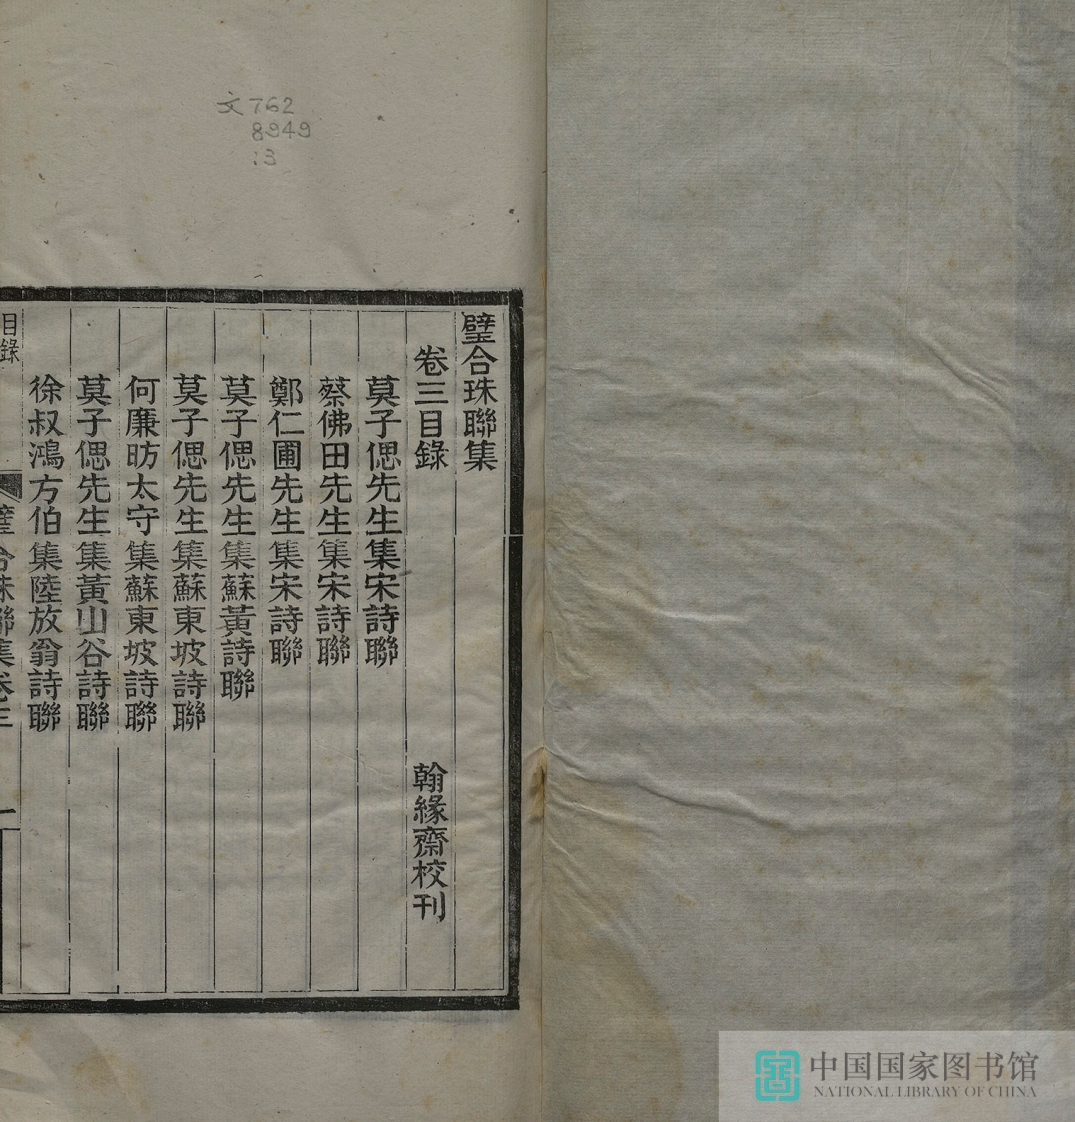 文762
8949
:3
璧合珠聯集
卷三目錄 翰緣齋校刊
莫子偲先生集宋詩聯
蔡佛田先生集宋詩聯
鄭仁圃先生集宋詩聯
莫子偲先生集蘇黃詩聯
莫子偲先生集蘇東坡詩聯
何廉昉太守集蘇東坡詩聯
莫子偲先生集黃山谷詩聯
徐叔鴻方伯集陸放翁詩聯
目錄 璧合珠聯集卷三 一
中国国家图书馆
NATIONAL LIBRARY OF CHINA